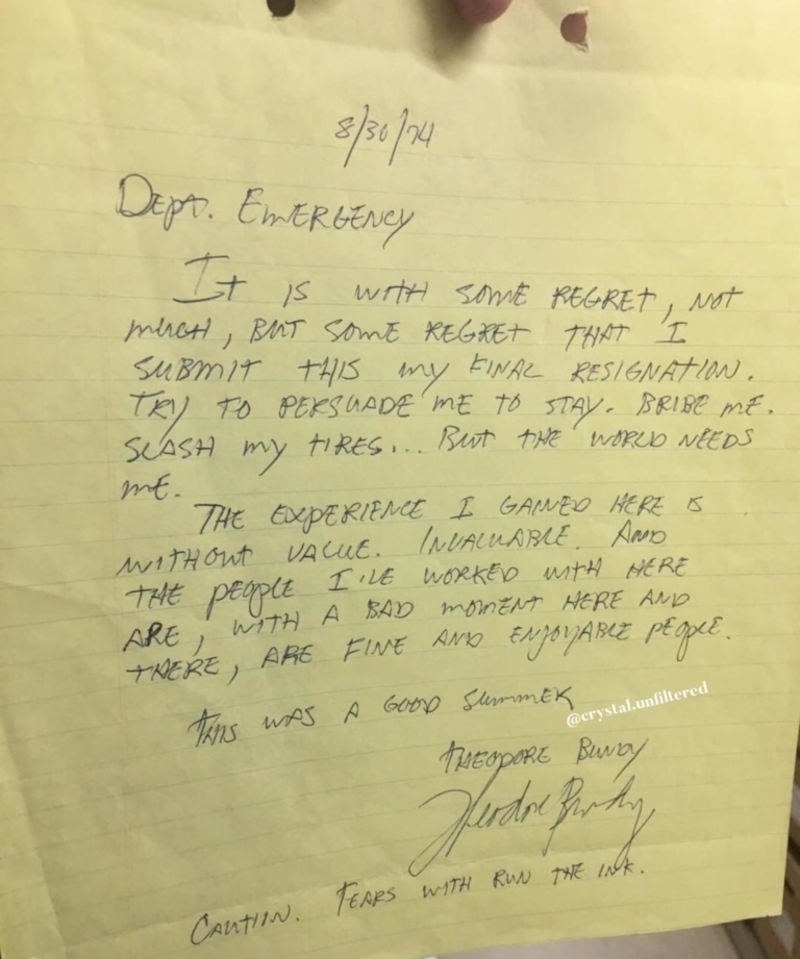 8/30/74
Dept. Emergency
It is with some regret, not
much, but some regret that I
submit this my final resignation.
Try to persuade me to stay. Bribe me.
Slash my tires... But the world needs
me.
The experience I gained here is
without value. Invaluable. And
the people I've worked with here
are, with a bad moment here and
there, are fine and enjoyable people.
This was a good summer
@crystal.unfiltered
Theodore Bundy
Theodore Bundy
Caution. Tears with run the ink.